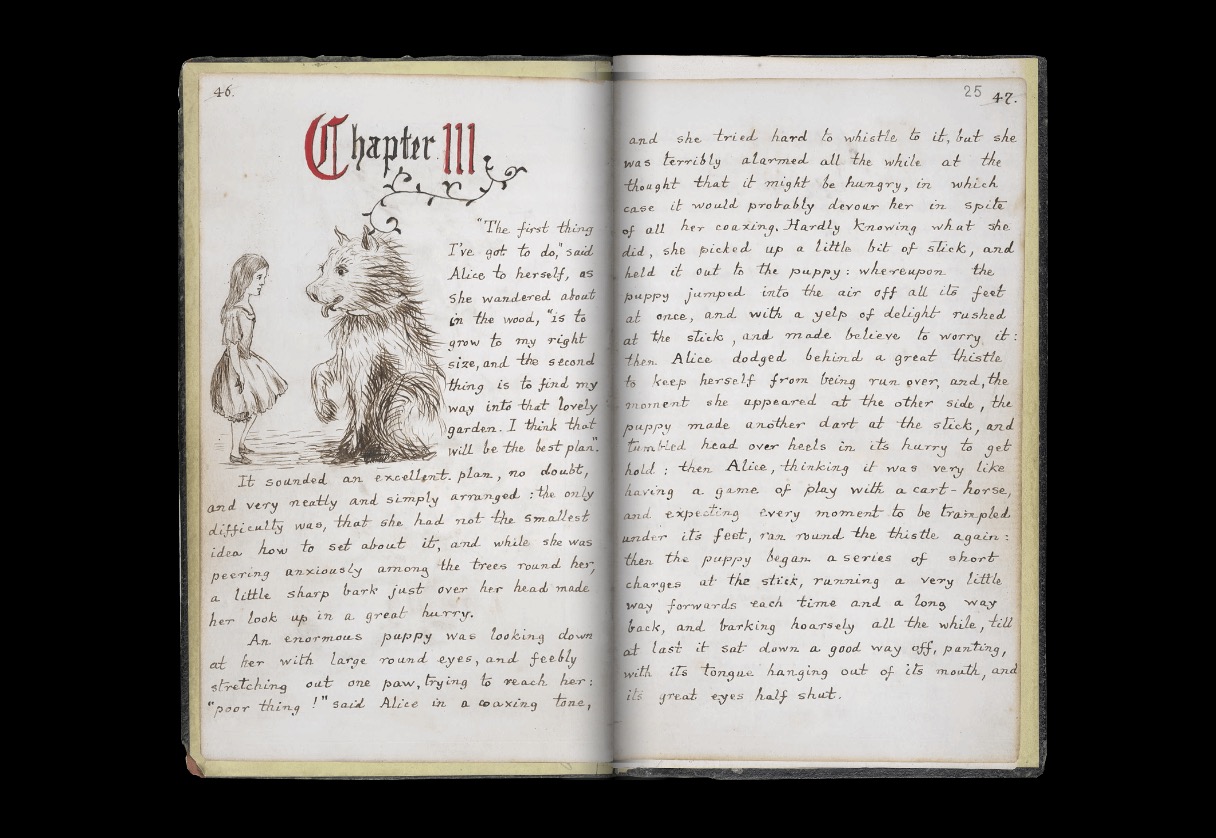 46.
Chapter III
"The first thing
I've got to do," said
Alice to herself, as
she wandered about
in the wood, "is to
grow to my right
size, and the second
thing is to find my
way into that lovely
garden. I think that
will be the best plan."
It sounded an excellent plan, no doubt,
and very neatly and simply arranged : the only
difficulty was, that she had not the smallest
idea how to set about it, and while she was
peering anxiously among the trees round her,
a little sharp bark just over her head made
her look up in a great hurry.
An enormous puppy was looking down
at her with large round eyes, and feebly
stretching out one paw, trying to reach her :
"poor thing !" said Alice in a coaxing tone,
25 47.
and she tried hard to whistle to it, but she
was terribly alarmed all the while at the
thought that it might be hungry, in which
case it would probably devour her in spite
of all her coaxing. Hardly knowing what she
did, she picked up a little bit of stick, and
held it out to the puppy : whereupon the
puppy jumped into the air off all its feet
at once, and with a yelp of delight rushed
at the stick, and made believe to worry it :
then Alice dodged behind a great thistle
to keep herself from being run over, and, the
moment she appeared at the other side, the
puppy made another dart at the stick, and
tumbled head over heels in its hurry to get
hold : then Alice, thinking it was very like
having a game of play with a cart-horse,
and expecting every moment to be trampled
under its feet, ran round the thistle again :
then the puppy began a series of short
charges at the stick, running a very little
way forwards each time and a long way
back, and barking hoarsely all the while, till
at last it sat down a good way off, panting,
with its tongue hanging out of its mouth, and
its great eyes half shut.